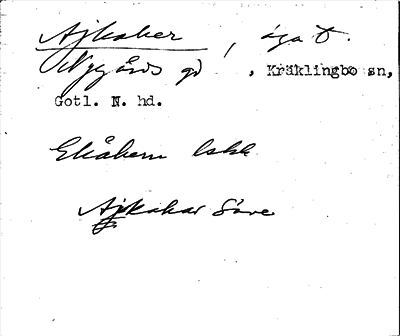 Ajkaker, äga t.
Nygårds gd, Kräklingbo sn,
Gotl. N. hd.
Ekåkern lskk
Ajkakar Säve